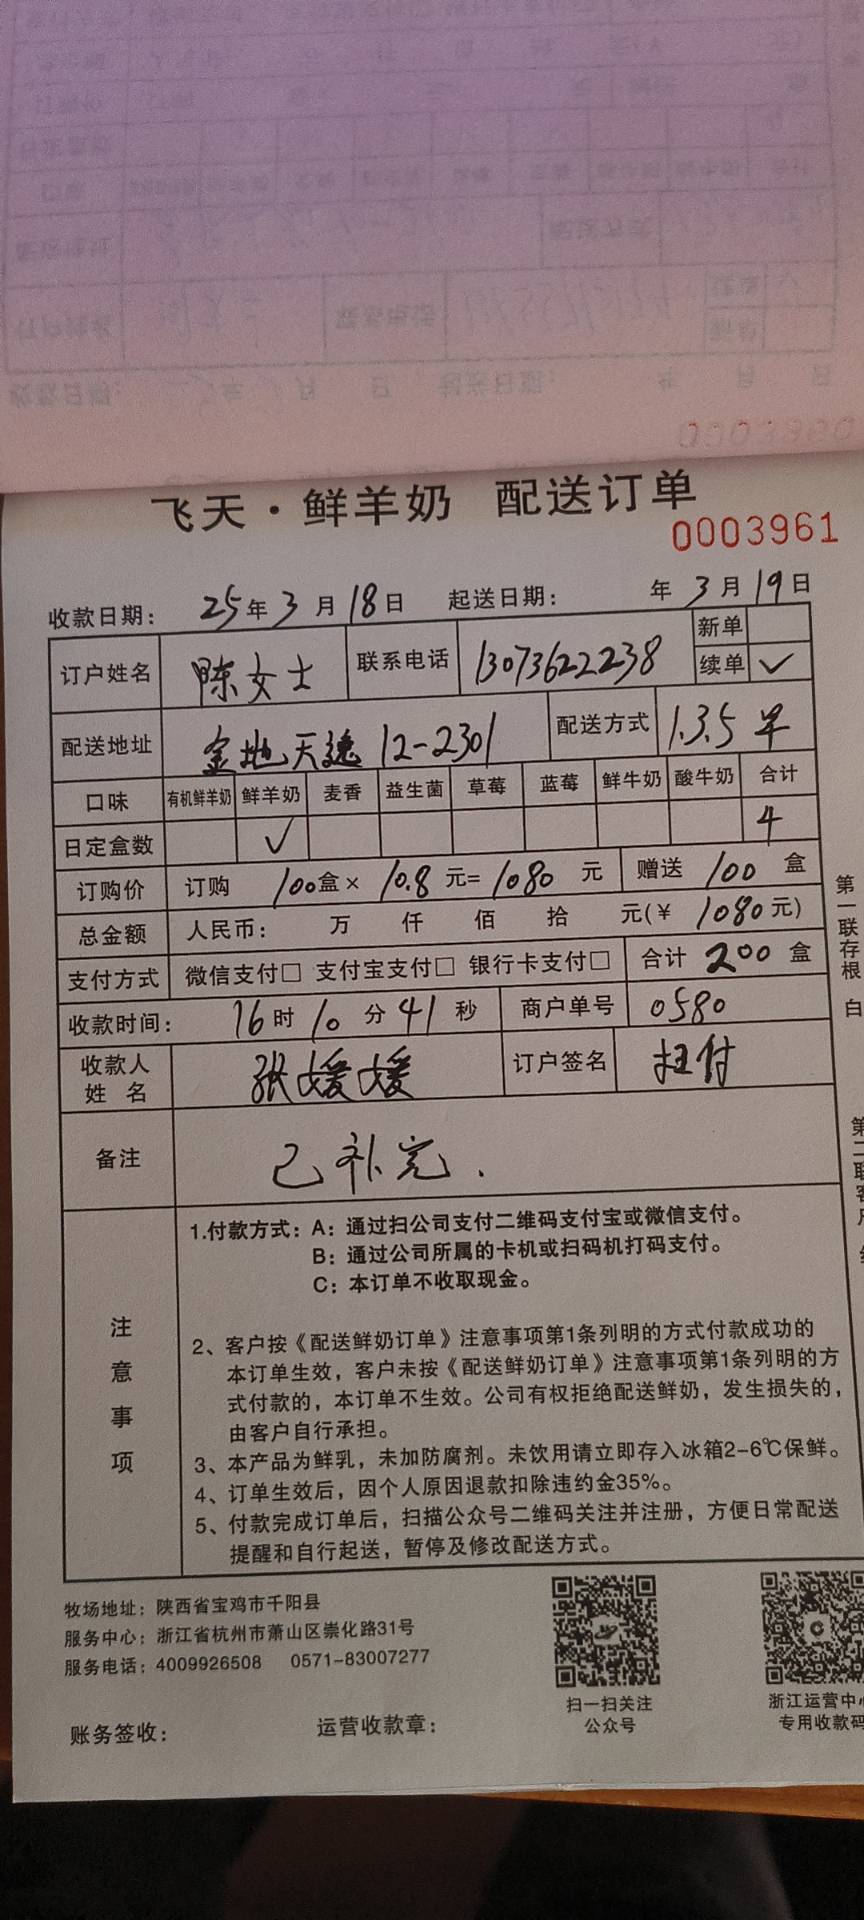 0003960
飞天·鲜羊奶 配送订单
0003961
收款日期： 25年3月18日 起送日期： 年3月19日
订户姓名 陈女士 联系电话 13073622238 新单
续单 ✓
配送地址 金地天逸 12-2301 配送方式 1.3.5 早
口味 有机鲜羊奶 鲜羊奶 麦香 益生菌 草莓 蓝莓 鲜牛奶 酸牛奶 合计
日定盒数 ✓ 4
订购价 订购 100盒× 10.8元= 1080 元 赠送 100 盒
总金额 人民币： 万 仟 佰 拾 元(￥ 1080元)
支付方式 微信支付□ 支付宝支付□ 银行卡支付□ 合计 200 盒
收款时间： 16时 10 分 41 秒 商户单号 0580
收款人
姓 名 张媛媛 订户签名 扫付
备注 已补完.
注意事项
1.付款方式：A：通过扫公司支付二维码支付宝或微信支付。
B：通过公司所属的卡机或扫码机打码支付。
C：本订单不收取现金。
2、客户按《配送鲜奶订单》注意事项第1条列明的方式付款成功的
本订单生效，客户未按《配送鲜奶订单》注意事项第1条列明的方
式付款的，本订单不生效。公司有权拒绝配送鲜奶，发生损失的，
由客户自行承担。
3、本产品为鲜乳，未加防腐剂。未饮用请立即存入冰箱2-6℃保鲜。
4、订单生效后，因个人原因退款扣除违约金35%。
5、付款完成订单后，扫描公众号二维码关注并注册，方便日常配送
提醒和自行起送，暂停及修改配送方式。
第一联存根 白
第二联客户
牧场地址：陕西省宝鸡市千阳县
服务中心：浙江省杭州市萧山区崇化路31号
服务电话：4009926508 0571-83007277
扫一扫关注
公众号
浙江运营中心
专用收款码
账务签收： 运营收款章：